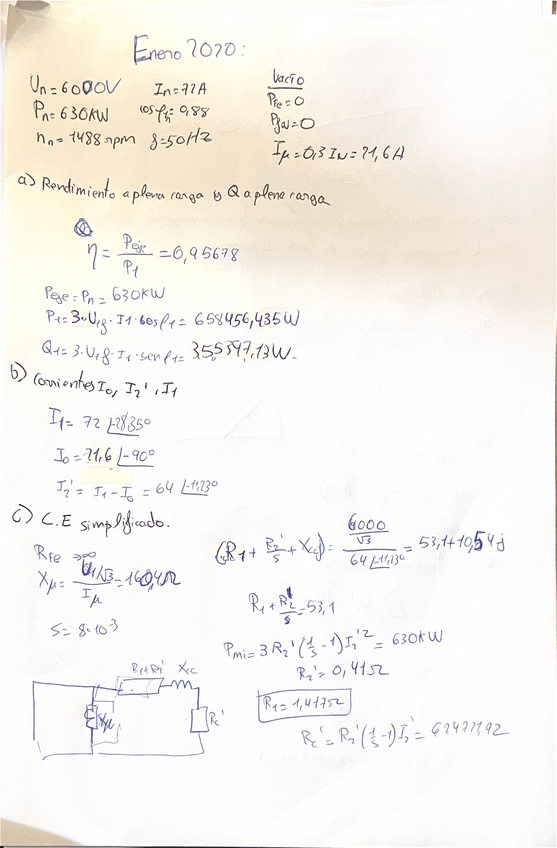 Enero 2020:
Un = 6000V In = 72A Vacío
Pn = 630KW cos φn = 0,88 PFe = 0
nn = 1488 rpm f = 50HZ Pfw = 0
Iμ = 0,3 IN = 21,6 A
a) Rendimiento a plena carga y Q a plena carga
η = Peje / P1 = 0,95678
Peje = Pn = 630KW
P1 = 3·U1f·I1·cosφ1 = 658456,435W
Q1 = 3·U1f·I1·senφ1 = 355397,13W
b) Corrientes I0, I2', I1
I1 = 72 ∠-28,35º
I0 = 21,6 ∠-90º
I2' = I1 - I0 = 64 ∠-11,23º
c) C.E simplificado.
RFe → ∞
Xμ = U1/√3 / Iμ = 160,4Ω
S = 8·10³
(R1 + R2'/s + Xccj) = 6000/√3 / 64∠-11,23º = 53,1 + 10,54j
R1 + R2'/s = 53,1
Pmi = 3 R2' (1/s - 1) I2'² = 630KW
R2' = 0,41Ω
R1 = 1,417Ω
Rc' = R2' (1/s - 1) I2' =
R1+R2' Xcc
Xμ Rc'